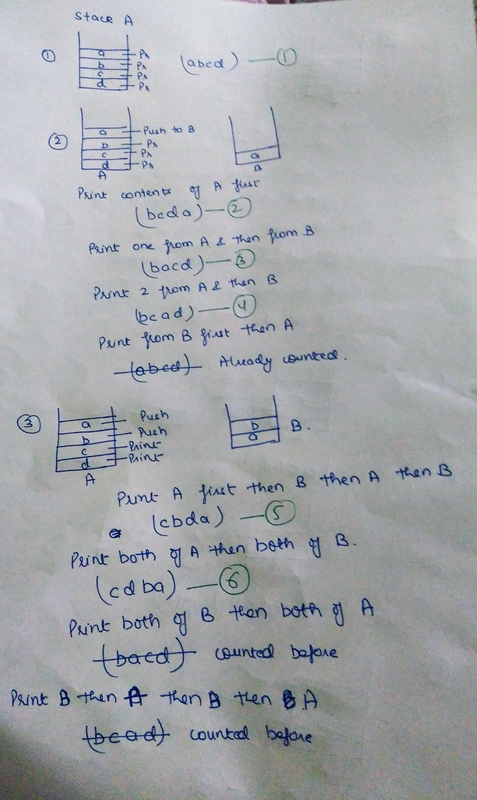 Stack A
① a Pr
b Pr
c Pr
d Pr
(abcd) — ①
② a Push to B
b Pr
c Pr
d Pr
A
a
B
Print contents of A first
(bcda) — ②
Print one from A & then from B
(bacd) — ③
Print 2 from A & then B
(bcad) — ④
Print from B first then A
(abcd) Already counted.
③ a Push
b Push
c Print
d Print
A
b
a
B.
Print A first then B then A then B
(cbda) — ⑤
Print both of A then both of B.
(cdba) — ⑥
Print both of B then both of A
(bacd) counted before
Print B then A then B then A
(bcad) counted before